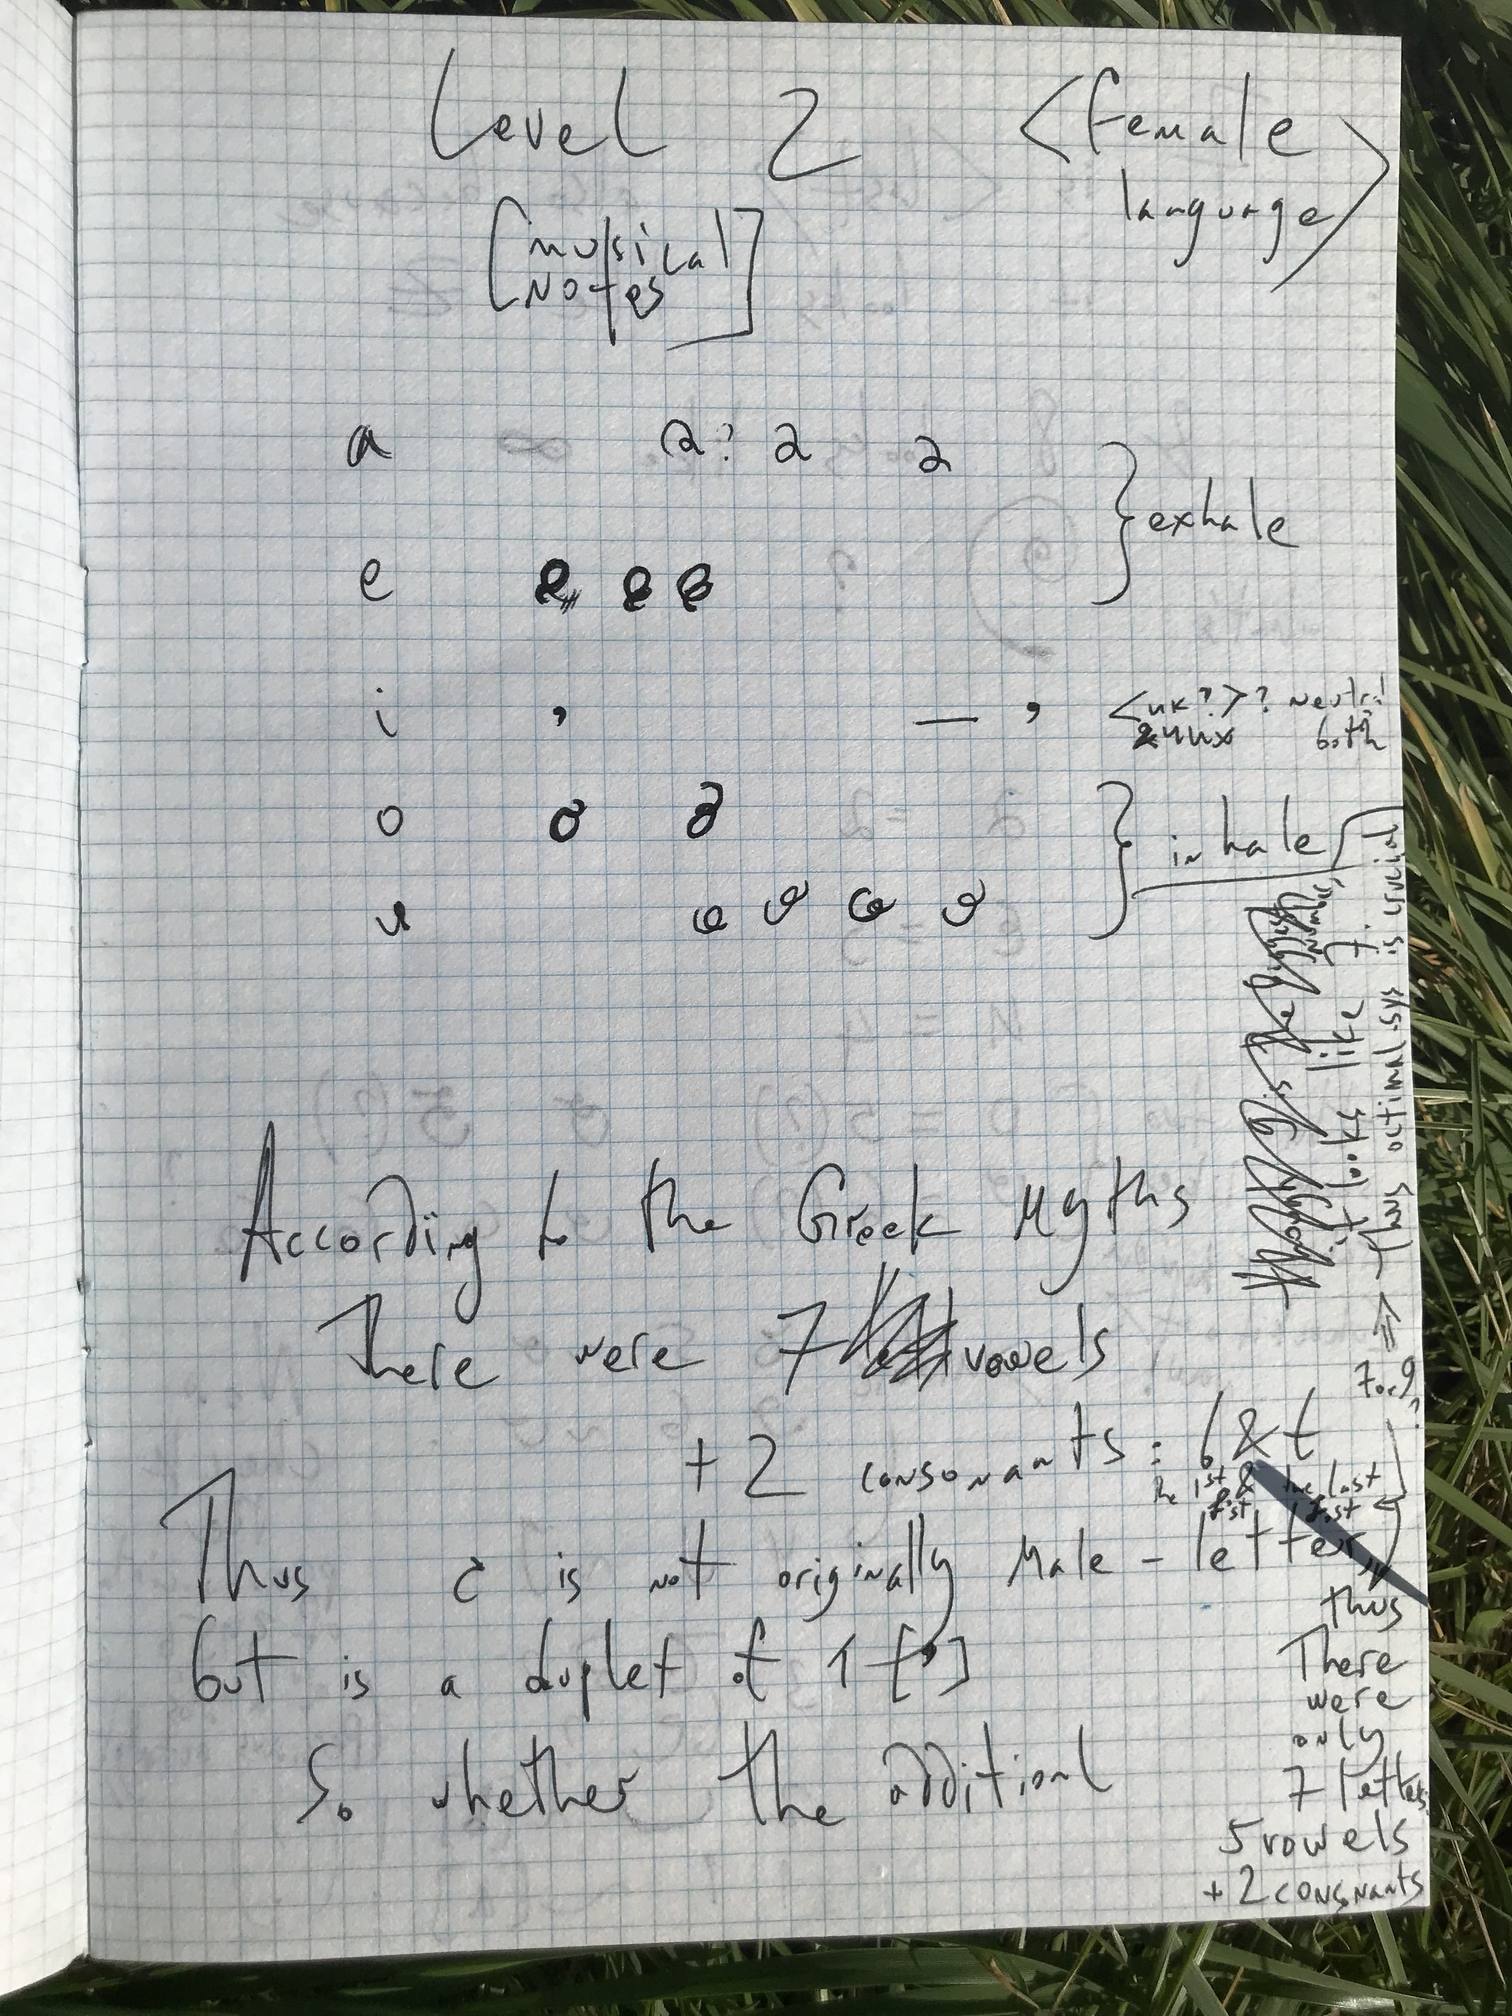 Level 2 <female
language>
[musical
notes]
a a? a a
} exhale
e e e e
i , — , <ик?>? neutral
both
o
} inhale
u
it looks like 7.
Thus octimal sys is crucial
According to the Greek Myths
There were 7 vowels
7 or 9?
+ 2 consonants: b & t
the 1st & the last
first
Thus c is not originally Male-letter,
but is a duplet of 1 [,]
So whether the additional
thus
There
were
only
7 letters
5 vowels
+ 2 consonants